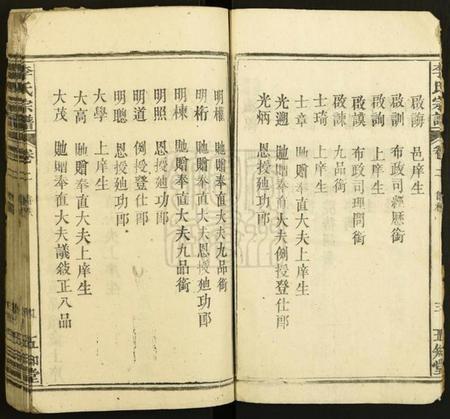 李氏宗譜
卷二
三
五知堂
啟誨 邑庠生
啟訓 布政司經歷銜
啟詢 上庠生
啟謨 布政司理問銜
啟諫 九品銜
士琦 上庠生
士章 貤贈奉直大夫上庠生
光遡 貤贈奉直大夫例授登仕郎
光炳 恩授廸功郎
明權 貤贈奉直大夫九品銜
明桁 貤贈奉直大夫恩授廸功郎
明棟 貤贈奉直大夫九品銜
明照 恩授廸功郎
明道 例授登仕郎
明聰 恩授廸功郎
大學 上庠生
大高 貤贈奉直大夫上庠生
大茂 貤贈奉直大夫議敍正八品
李氏宗譜
卷二
五知堂